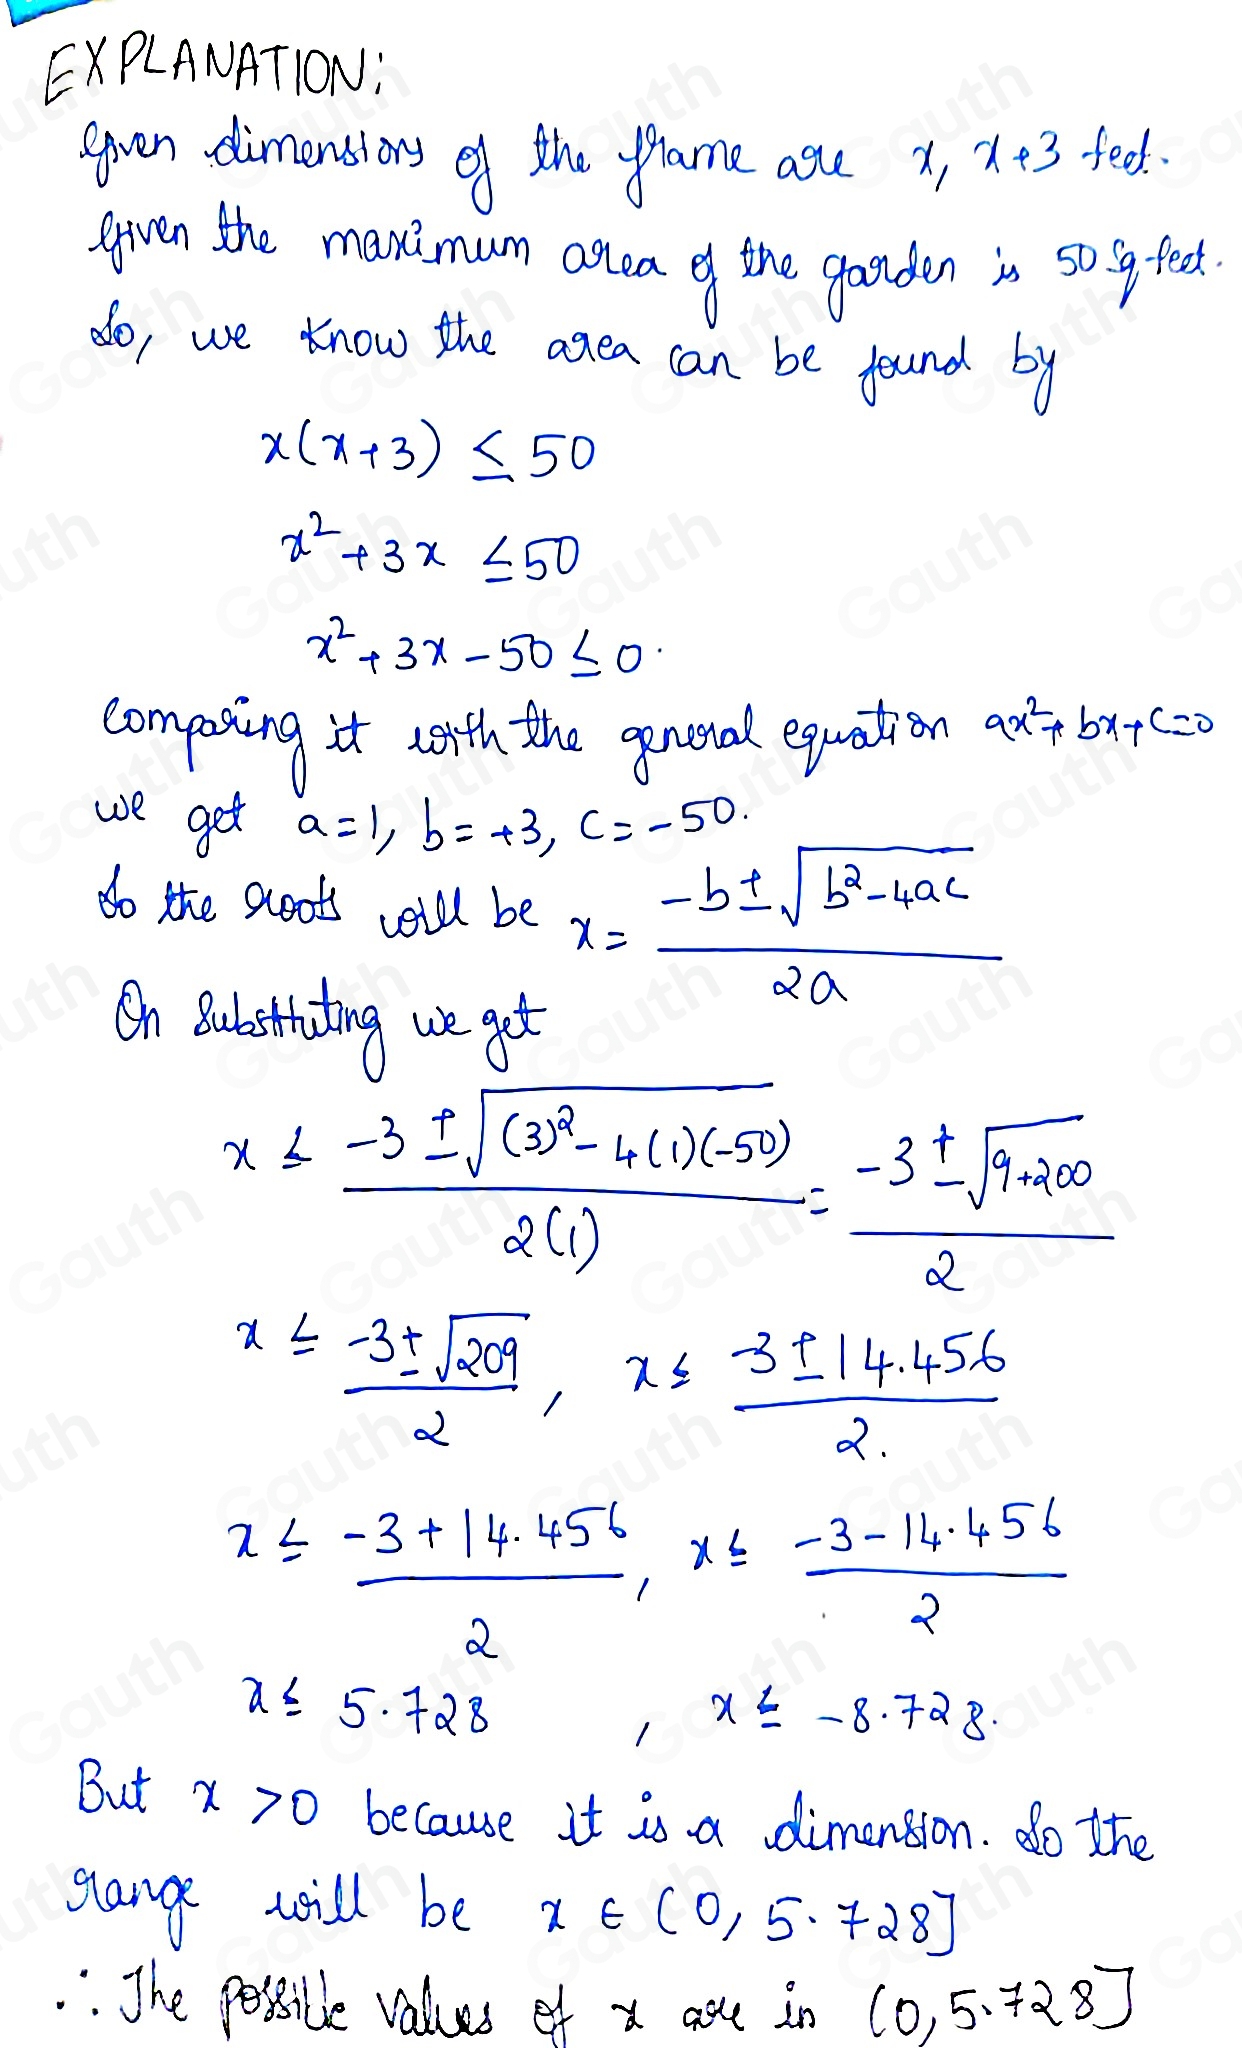 EXPLANATION:
Given dimensions of the frame are x, x+3 feet.
Given the maximum area of the garden is 50 sq-feet.
So, we know the area can be found by
x(x+3) ≤ 50
x²+3x ≤ 50
x²+3x-50 ≤ 0.
Comparing it with the general equation ax²+bx+c=0
we get a=1, b=+3, c=-50.
So the roots will be x = (-b ± √(b²-4ac)) / 2a
On Substituting we get
x ≤ (-3 ± √((3)²-4(1)(-50))) / 2(1) = (-3 ± √(9+200)) / 2
x ≤ (-3 ± √209) / 2, x ≤ (-3 ± 14.456) / 2.
x ≤ (-3+14.456) / 2, x ≤ (-3-14.456) / 2
x ≤ 5.728, x ≤ -8.728.
But x >0 because it is a dimension. So the
range will be x ∈ (0, 5.728]
∴ The possible values of x are in (0, 5.728]
Gauth